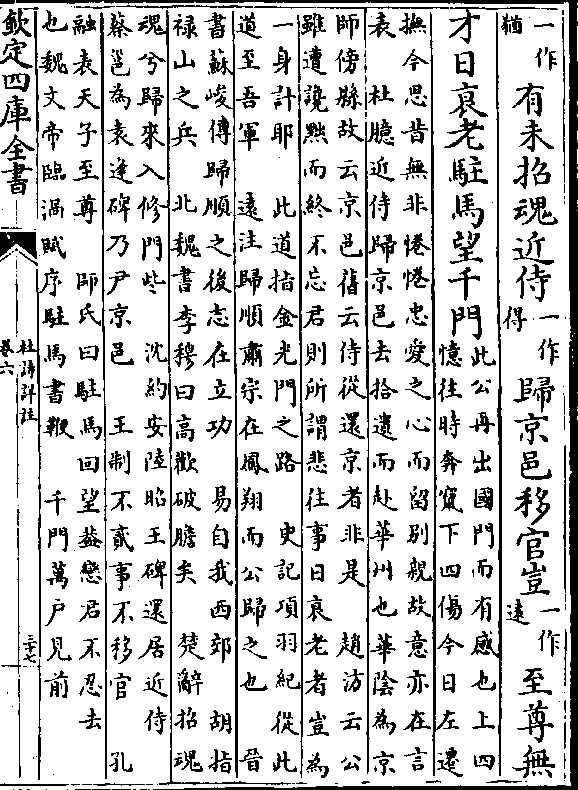 一作猶有未招魂近侍一作得歸京邑移官豈一作遠至尊無
才日衰老駐馬望千門此公再出國門而有感也上四憶往時奔竄下四傷今日左遷
撫今思昔無非惓惓忠愛之心而留别親故意亦在言
表　杜臆近侍歸京邑去拾遺而赴華州也華隂為京
師傍縣故云京邑舊云侍從還京者非是　趙汸云公
雖遭讒黜而終不忘君則所謂悲往事日衰老者豈為
一身計耶　此道指金光門之路　史記項羽紀從此
道至吾軍　遠注歸順肅宗在鳳翔而公歸之也　晉
書蘇峻傳歸順之後志在立功　易自我西郊　胡指
禄山之兵　北魏書李穆曰高歡破膽矣　楚辭招魂
魂兮歸來入修門些　沈約安陸昭王碑還居近侍
蔡邕為袁逢碑乃尹京邑　王制不貳事不移官　孔
融表天子至尊　師氏曰駐馬回望葢戀君不忍去
也魏文帝臨渦賦序駐馬書鞭　千門萬户見前
欽定四庫全書
杜詩詳註
卷六
三十七